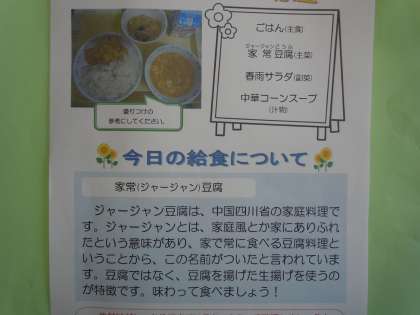 ごはん(主食)
ジャージャンとうふ
家常豆腐(主菜)
春雨サラダ(副菜)
中華コーンスープ
(汁物)
盛りつけの
参考にしてください。
今日の給食について
家常(ジャージャン)豆腐
ジャージャン豆腐は、中国四川省の家庭料理で
す。ジャージャンとは、家庭風とか家にありふれ
たという意味があり、家で常に食べる豆腐料理と
いうことから、この名前がついたと言われていま
す。豆腐ではなく、豆腐を揚げた生揚げを使うの
が特徴です。味わって食べましょう！